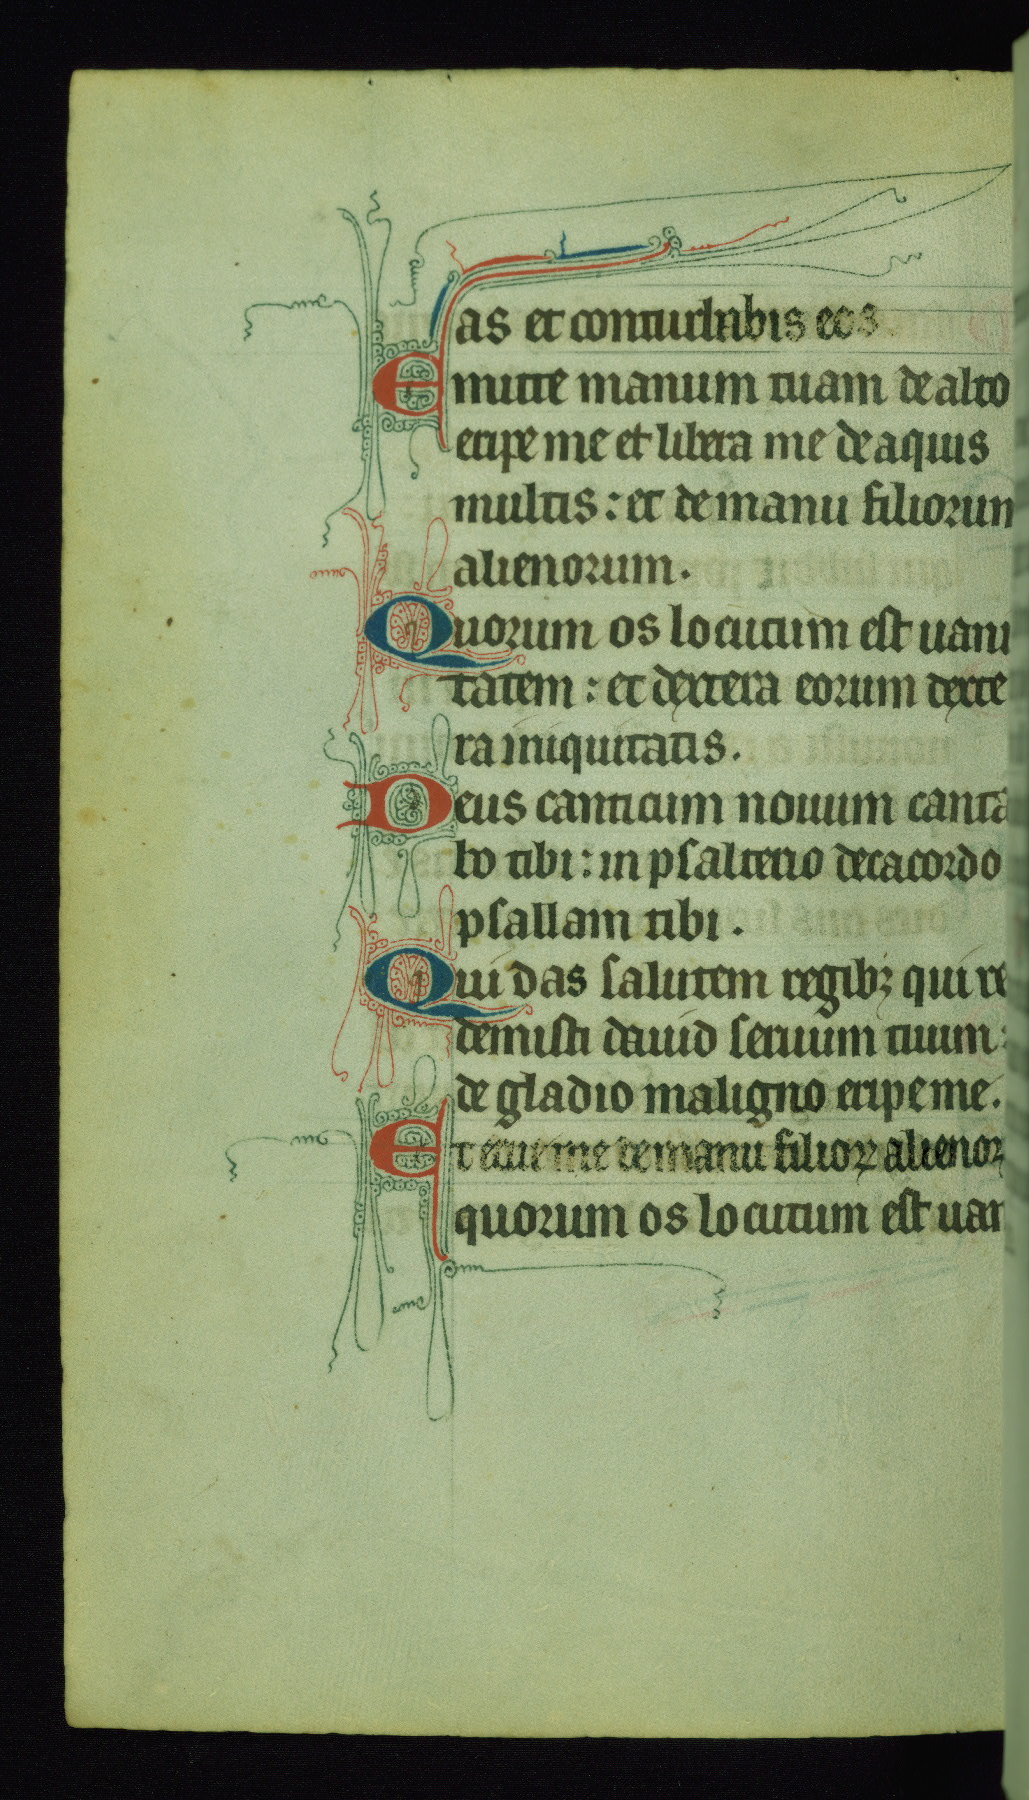 as et conturbabis eos
Emitte manum tuam de alto
eripe me et libera me de aquis
multis : et de manu filiorum
alienorum .
Quorum os locutum est uani
tatem : et dextera eorum dexte
ra iniquitatis .
Deus canticum nouum canta
bo tibi : in psalterio decacordo
psallam tibi .
Qui das salutem regibꝫ qui re
demisti dauid seruum tuum :
de gladio maligno eripe me .
Et erue me de manu filioꝝ alienoꝝ
quorum os locutum est uan